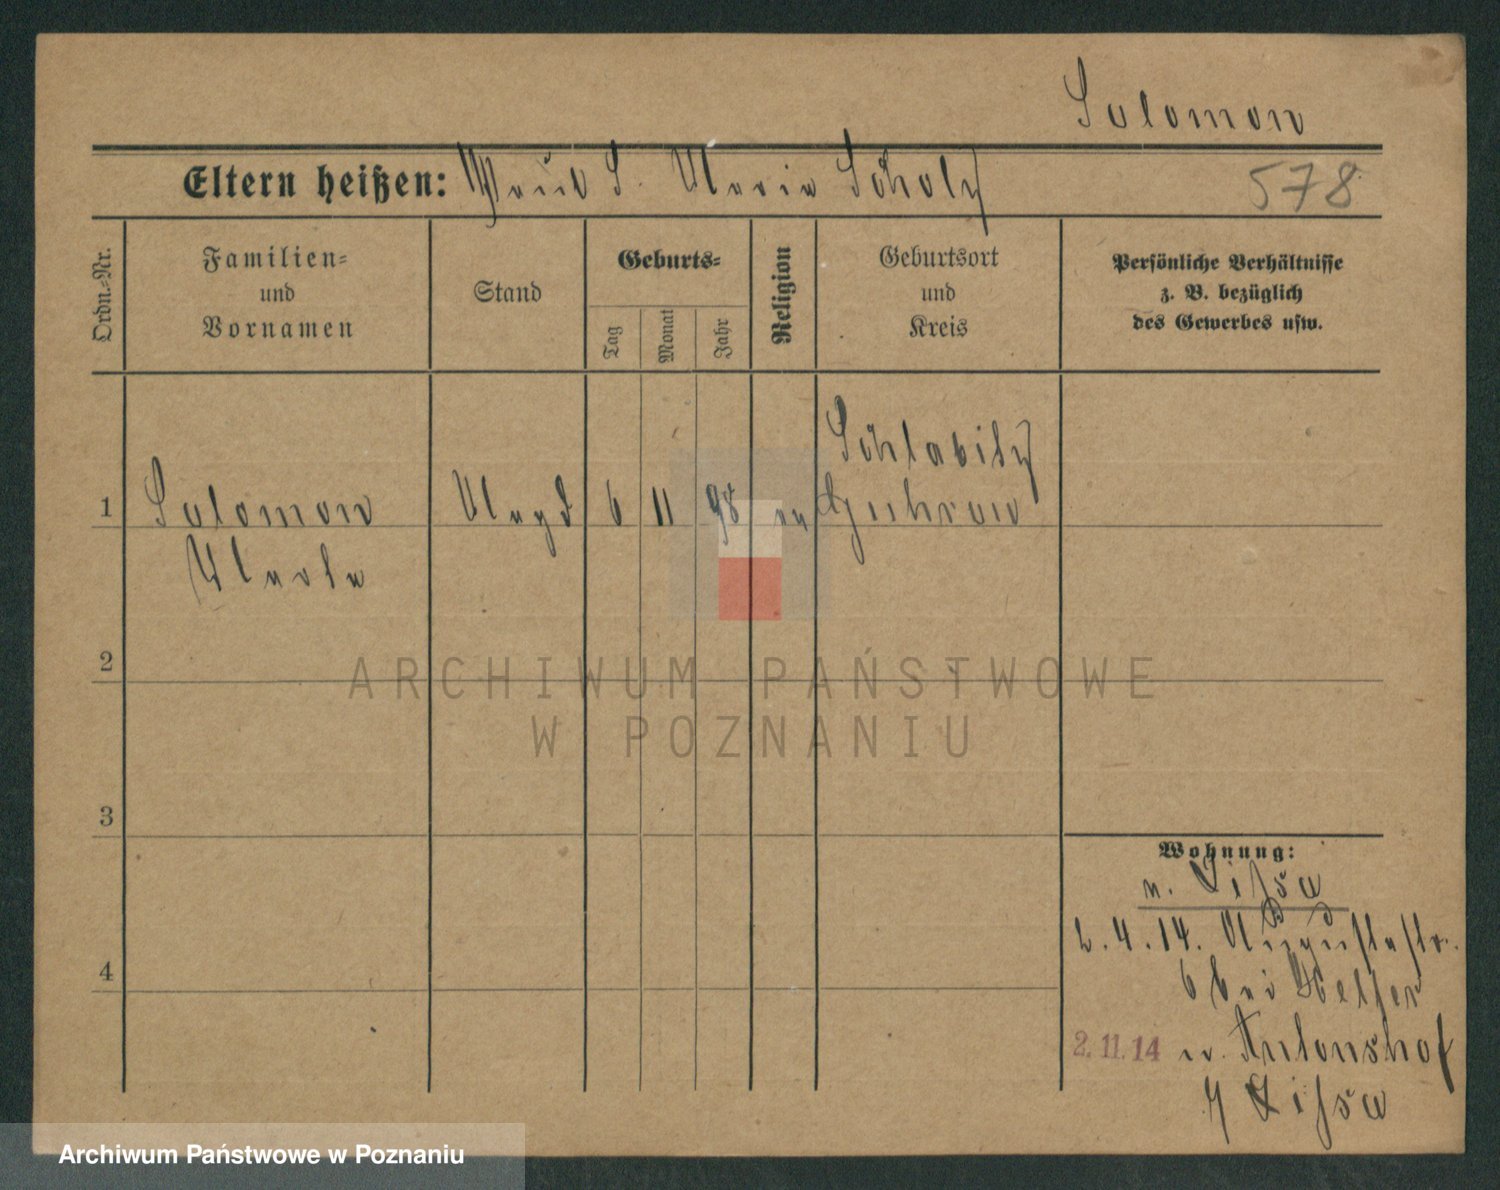 Salomon
Eltern heißen: Paul S. Maria Scholz 578
Ordn.-Nr.
Familien-
und
Vornamen
Stand
Geburts-
Tag
Monat
Jahr
Religion
Geburtsort
und
Kreis
Persönliche Verhältnisse
z. B. bezüglich
des Gewerbes usw.
Schlabitz
1 Salomon Magd 6 11 98 ev Guhrau
Marta
2
3
4
ARCHIWUM PAŃSTWOWE
W POZNANIU
Wohnung:
n. Lissa
2.4.14. Augustastr.
6 bei
2.11.14 n. Antonshof
Lissa
Archiwum Państwowe w Poznaniu